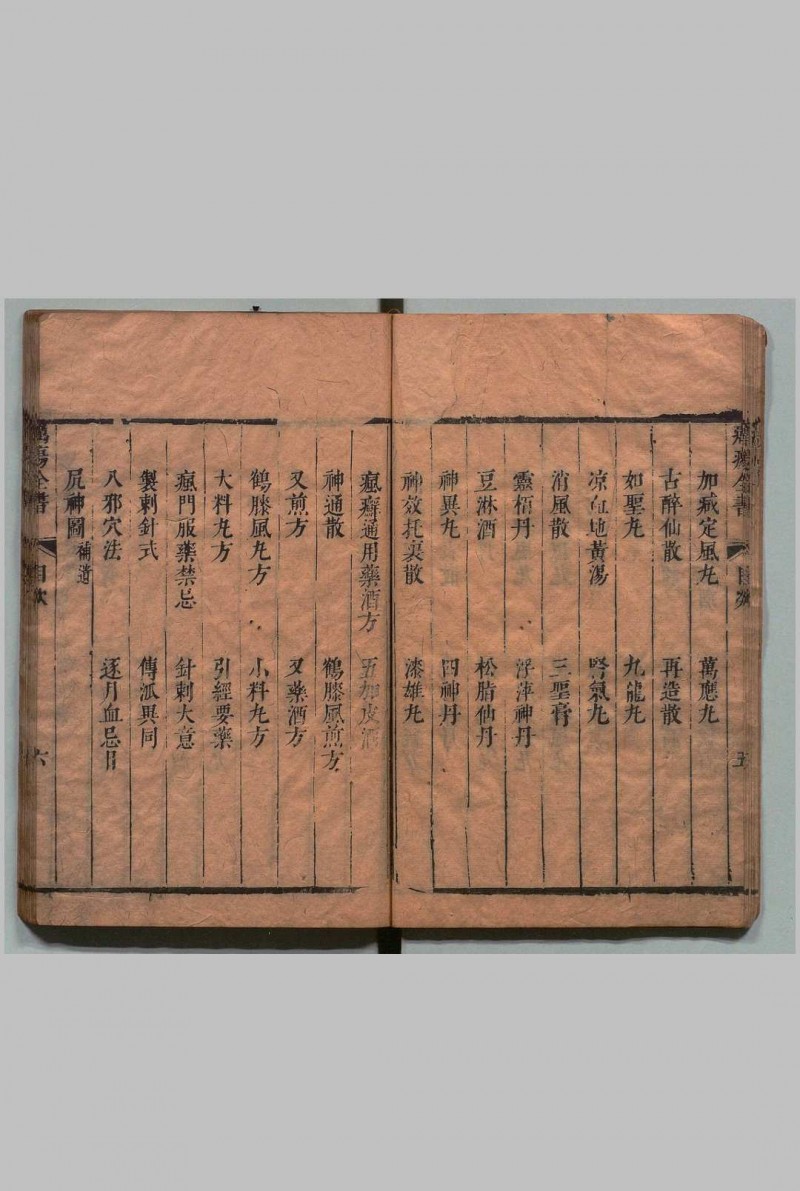 目次
五
加減定風丸 萬應丸
古醉仙散 再造散
如聖丸 九龍丸
凉血地黃湯 腎氣丸
消風散 三聖膏
靈栢丹 浮萍神丹
豆淋酒 松脂仙丹
神異丸 四神丹
神效托裏散 漆雄丸
瘋癬通用藥酒方 五加皮酒
神通散 鶴膝風煎方
又煎方 又藥酒方
鶴膝風丸方 小料丸方
大料丸方 引經要藥
瘋門服藥禁忌 針刺大意
製刺針式 傳派異同
八邪穴法 逐月血忌日
尻神圖 補遺
全書
目次
六